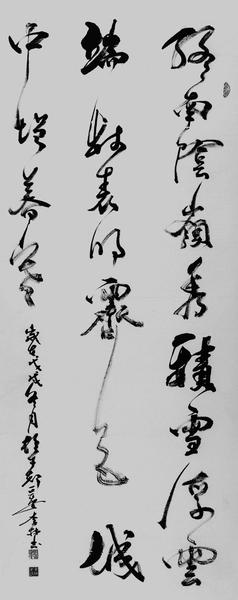 终南阴岭秀积雪浮云
端林表明霁色城
中增暮寒
岁在戊戌年月
书